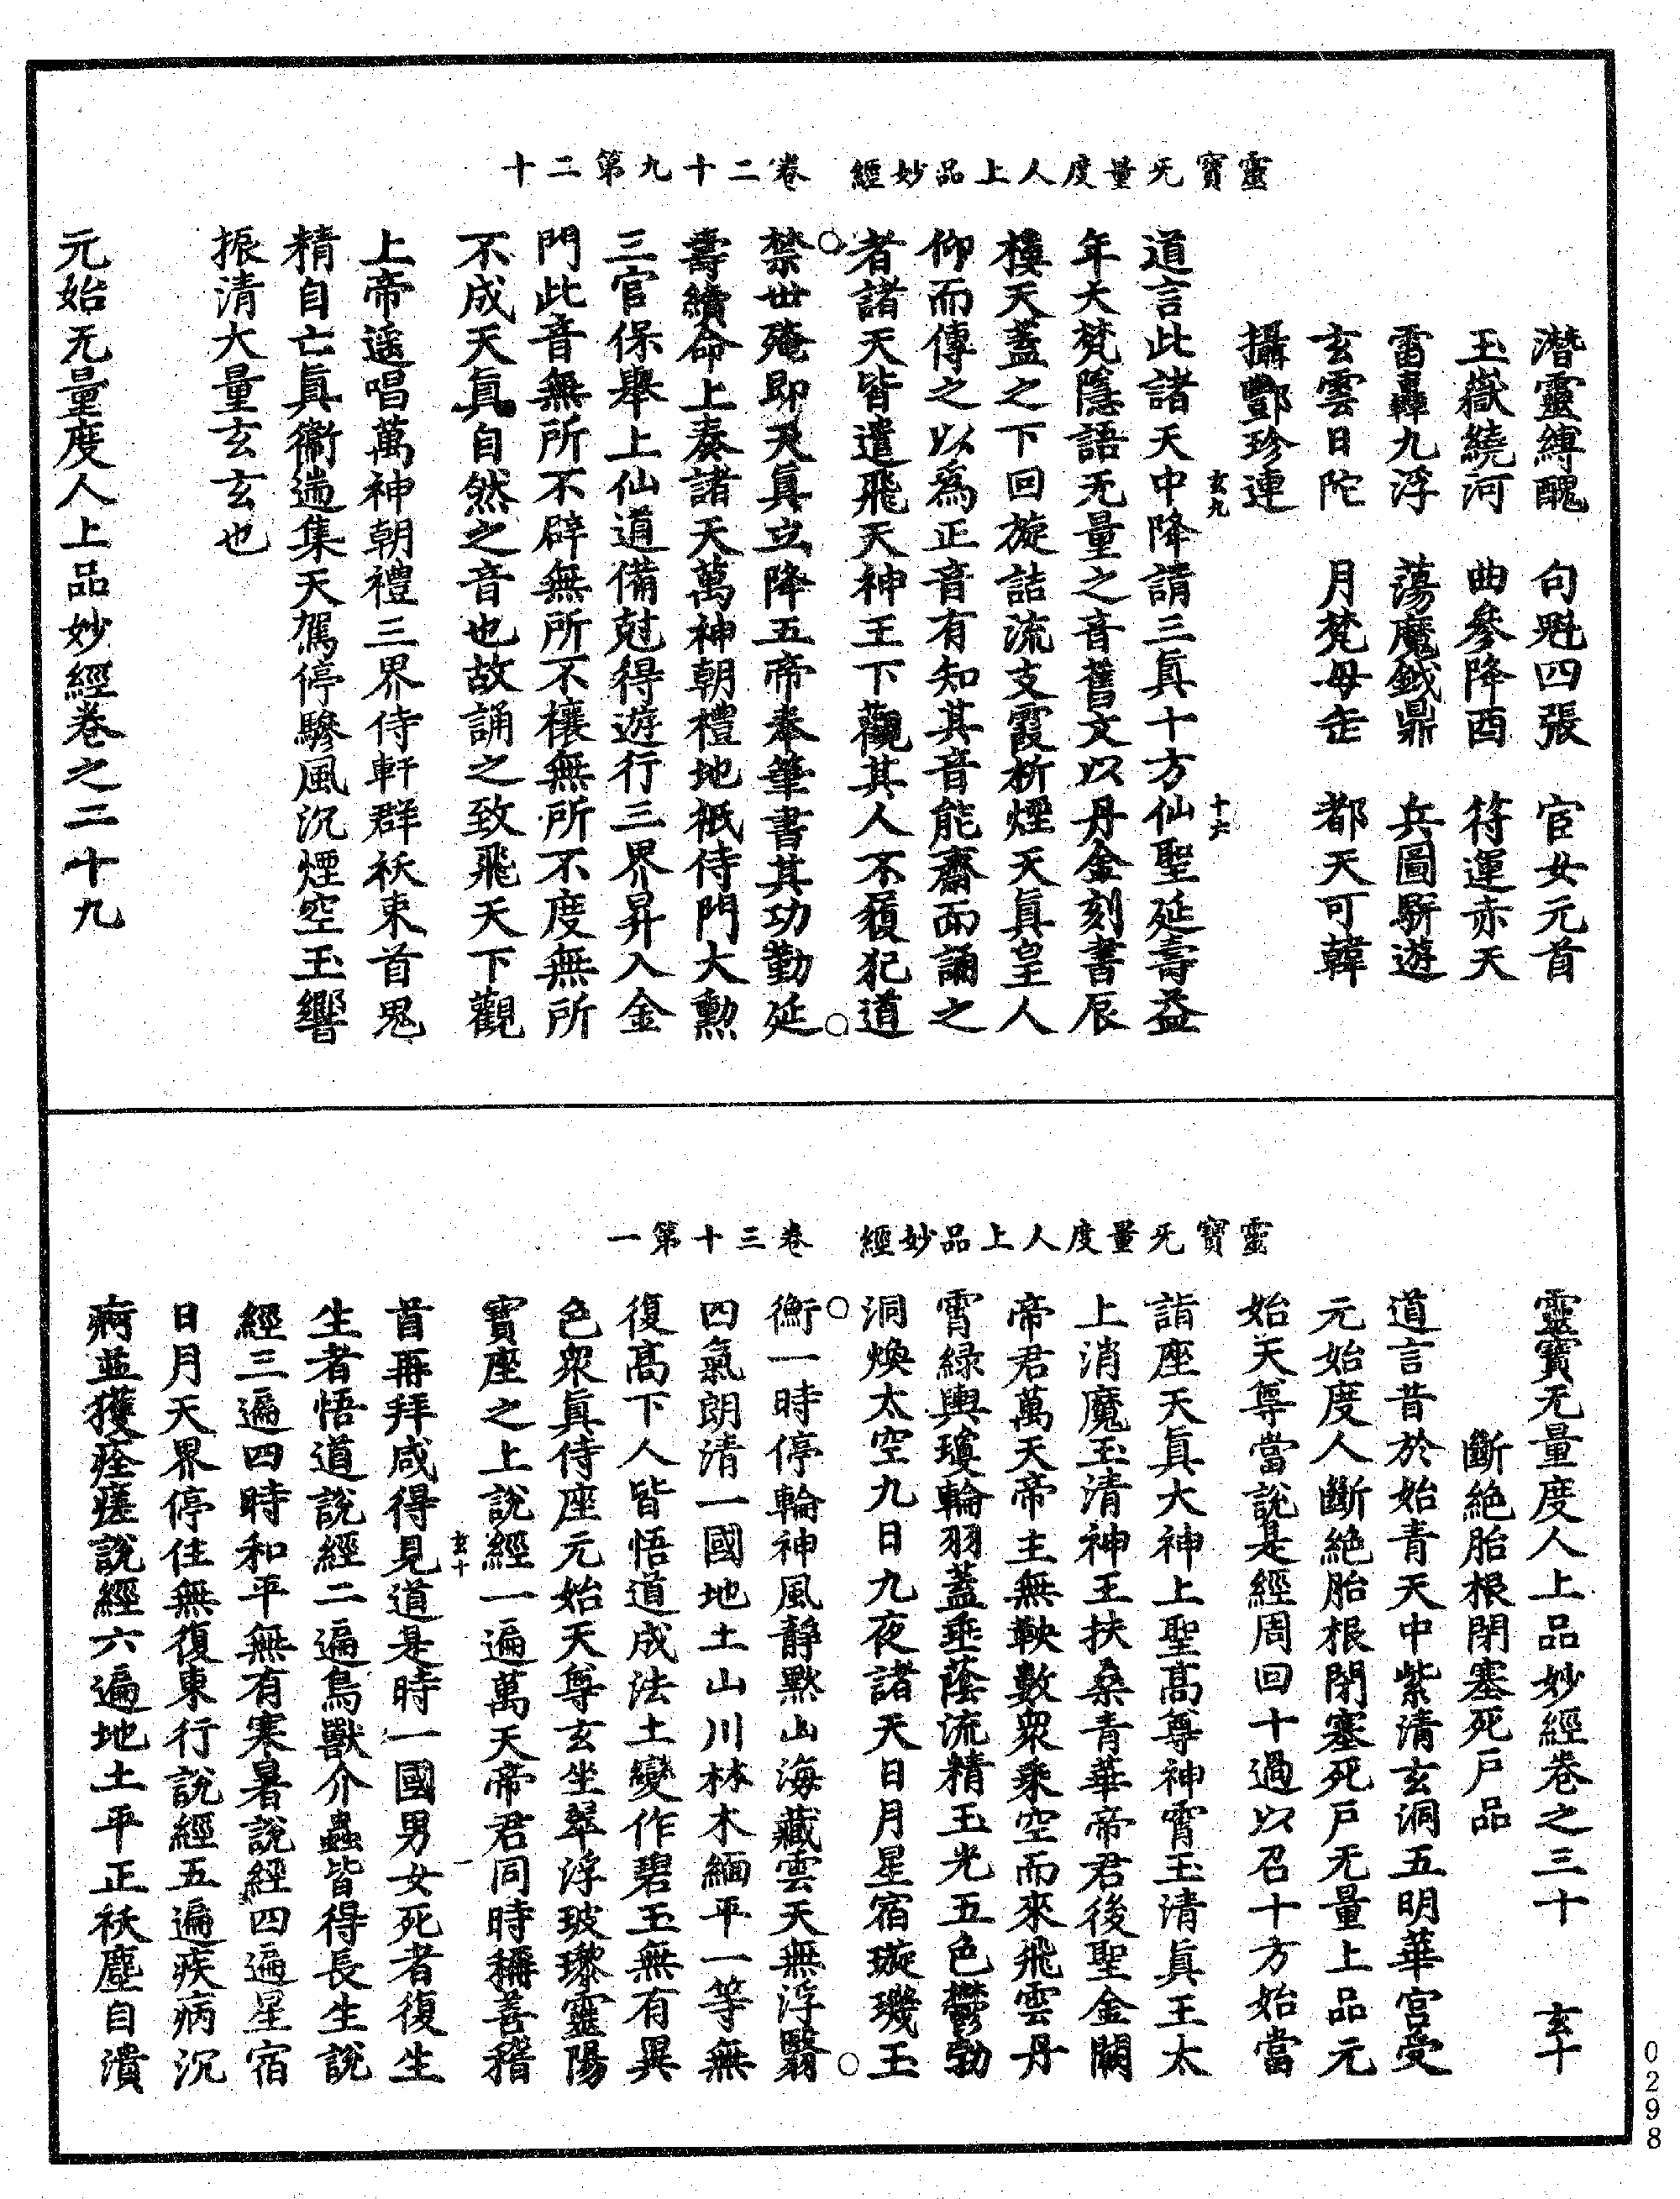 靈寶无量度人上品妙經　卷二十九第二十
潛靈縛醜　句魁四張　宦女元首
玉嶽繞河　曲參降酉　符運赤天
雷轟九浮　蕩魔鉞鼎　兵圖駢遊
玄雲日陀　月梵母𦈢　都天可韓
攝酆珍連
玄九　十六
道言此諸天中降請三眞十方仙聖延壽益
年大梵隱語无量之音舊文以丹金刻書辰
樓天蓋之下回旋詰流支霞析煙天眞皇人
仰而傳之以爲正音有知其音能齋而誦之
者諸天皆遣飛天神王下觀其人不須犯道
禁世殗即天眞立降五帝奉筆書其功勤延
壽續命上奏諸天萬神朝禮地祇侍門大勲
三官保舉上仙道備尅得遊行三界昇入金
門此音無所不辟無所不禳無所不度無所
不成天眞自然之音也故誦之致飛天下觀
上帝遥唱萬神朝禮三界侍軒群袄束首鬼
精自亡眞衞遄集天駕停驂風沉煙空玉響
振清大量玄玄也
元始无量度人上品妙經卷之二十九
靈寶无量度人上品妙經　卷三十第一
靈寶无量度人上品妙經卷之三十　玄十
斷絶胎根閉塞死戶品
道言昔於始青天中紫清玄洞五明華宮受
元始度人斷絶胎根閉塞死戶无量上品元
始天尊當說是經周回十過以召十方始當
詣座天眞大神上聖高尊神霄玉清眞王太
上消魔玉清神王扶桑青華帝君後聖金闕
帝君萬天帝主無鞅數衆乘空而來飛雲丹
霄緑輿瓊輪羽蓋垂蔭流精玉光五色鬱勃
洞煥太空九日九夜諸天日月星宿璇璣玉
衡一時停輪神風靜默山海藏雲天無浮翳
四氣朗清一國地土山川林木緬平一等無
復高下人皆悟道成法土變作碧玉無有異
色衆眞侍座元始天尊玄坐翠浮玻瓈靈陽
寶座之上說經一遍萬天帝君同時稱善稽
玄十　一
首再拜咸得見道是時一國男女死者復生
生者悟道說經二遍鳥獸介蟲皆得長生說
經三遍四時和平無有寒暑說經四遍星宿
日月天界停住無復東行說經五遍疾病沉
痾並獲痊瘥說經六遍地土平正袄塵自潰
0298